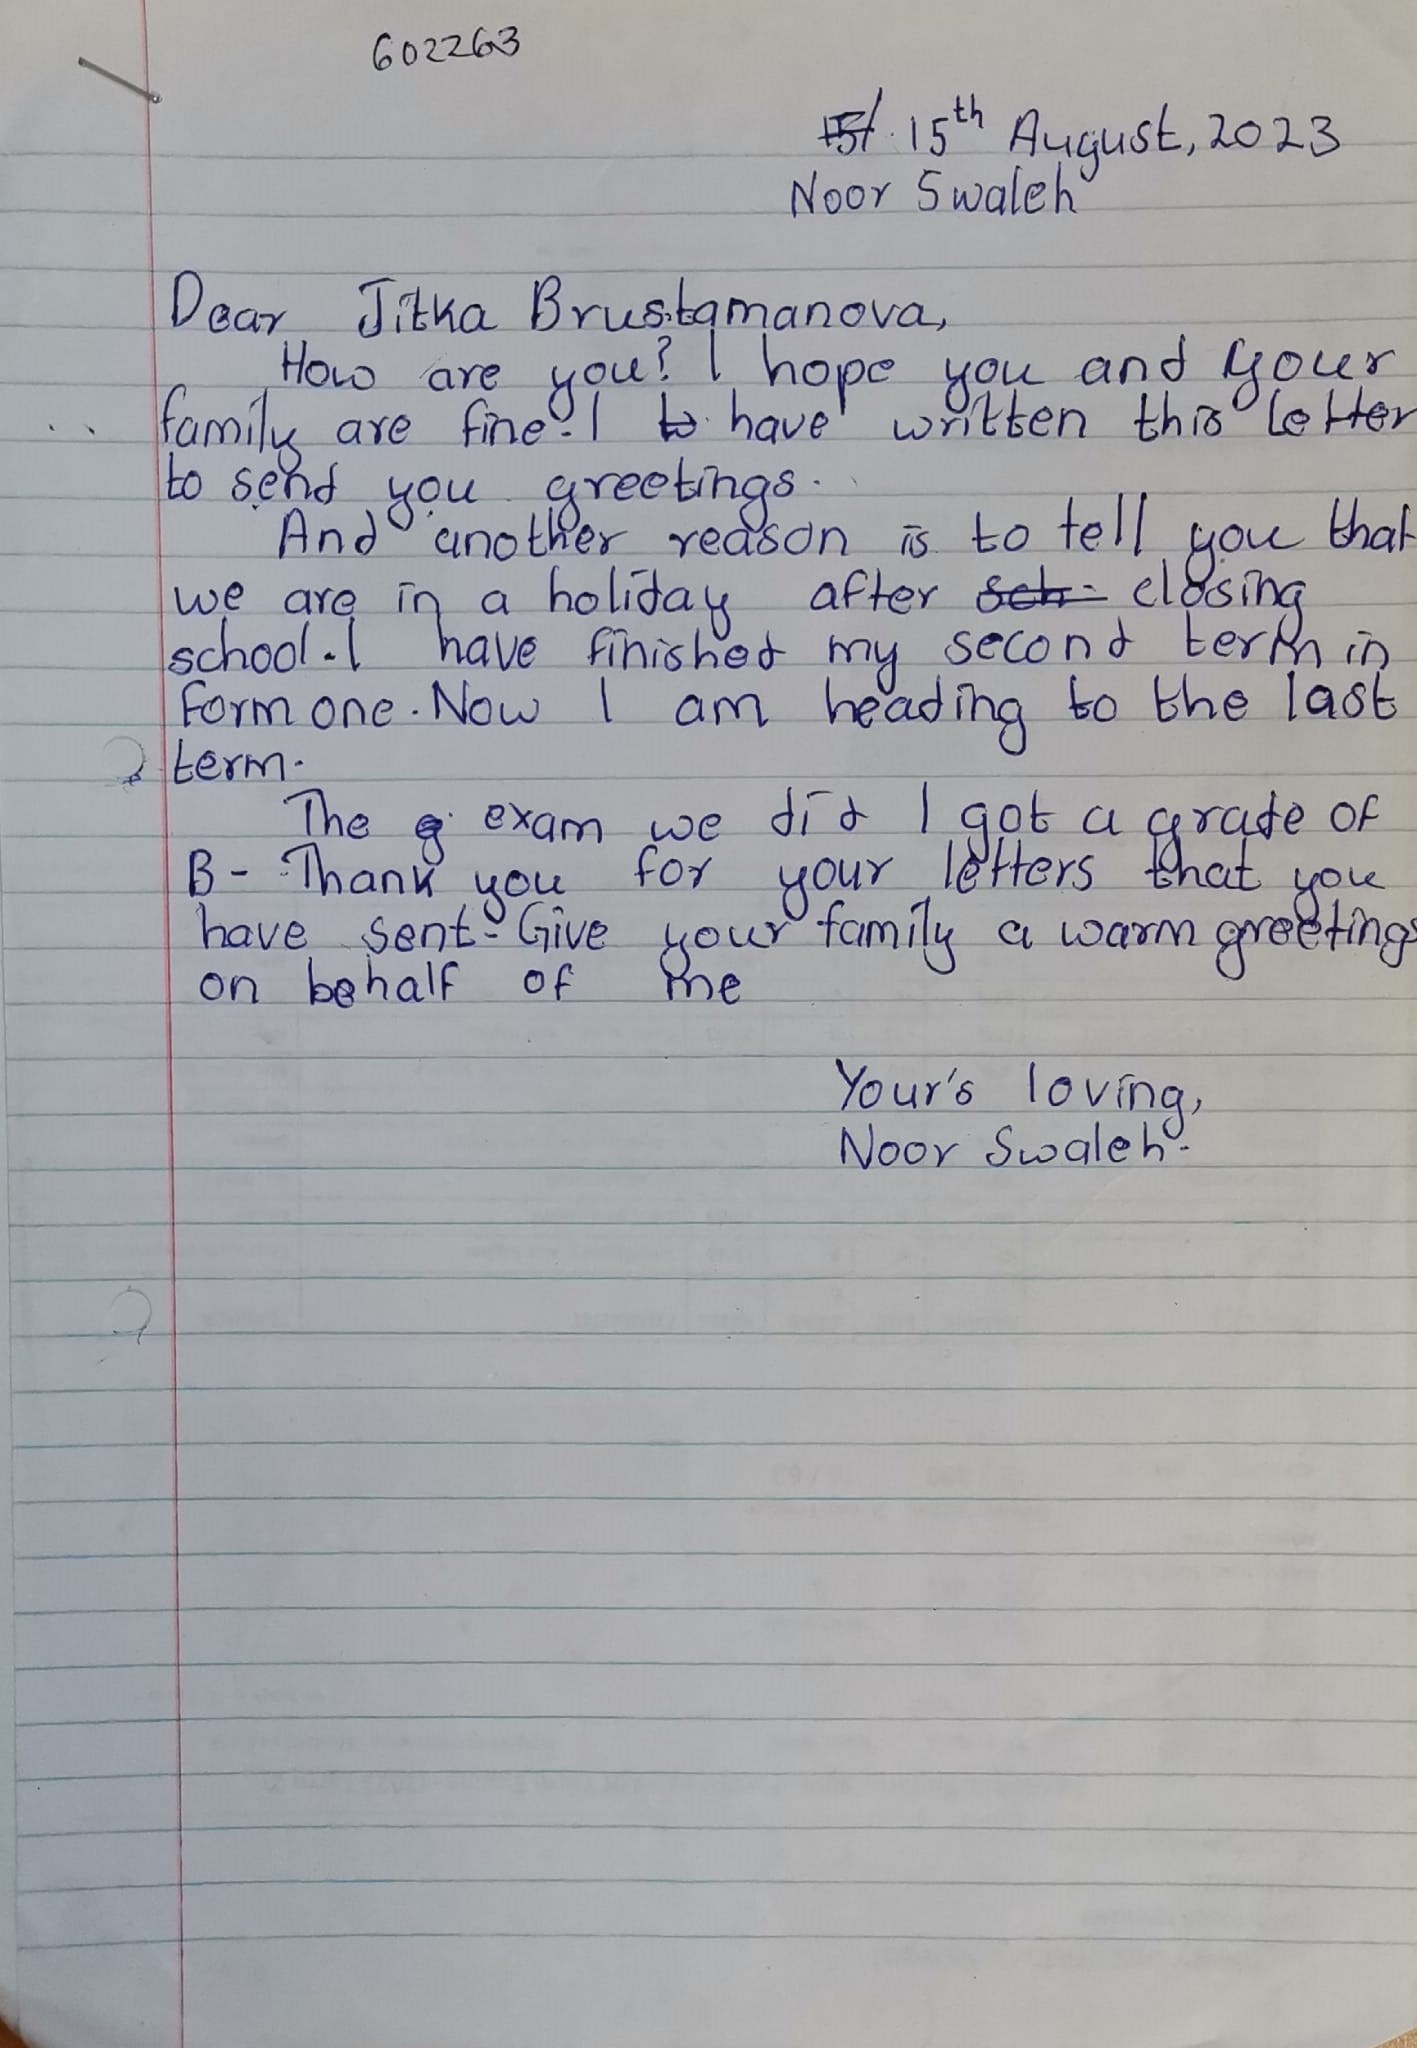 602263
15th August, 2023
Noor Swaleh
Dear Jitka Brustamanova,
How are you? I hope you and your
family are fine. I have written this letter
to send you greetings.
And another reason is to tell you that
we are in a holiday after closing
school. I have finished my second term in
Form one. Now I am heading to the last
term.
The exam we did I got a grade of
B- Thank you for your letters that you
have sent. Give your family a warm greetings
on behalf of me
Your's loving,
Noor Swaleh.